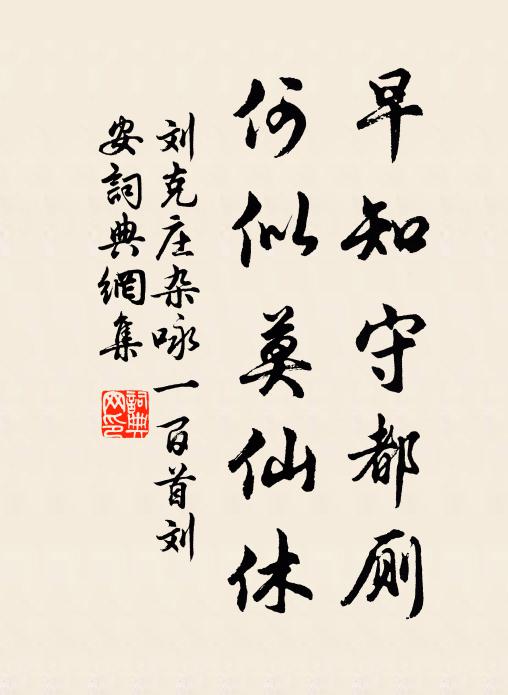 早知守都厕
何似莫仙休
刘克庄杂咏一百首刘
安詞典網集
詞典
网印